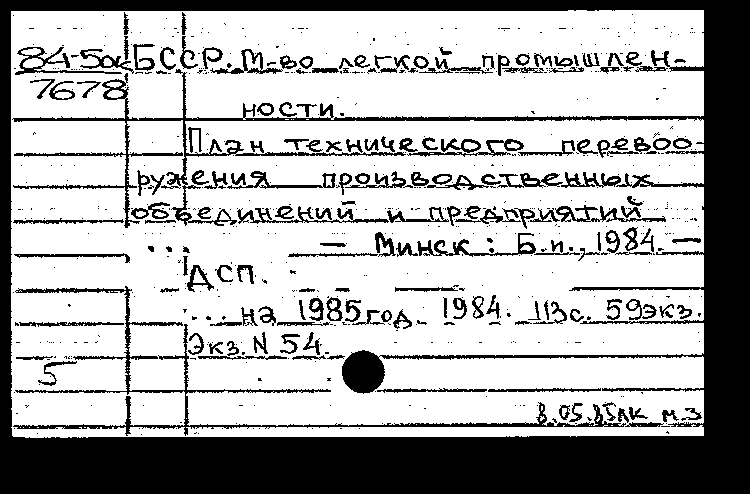 84-5ок БССР. М-во легкой промышлен-
7678
ности.
План технического перевоо-
ружения производственных
объединений и предприятий
... — Минск : Б.и., 1984. —
ДСП.
... на 1985 год. 1984. 113с. 59экз.
Экз. N 54.
5
8.05.85 м.з